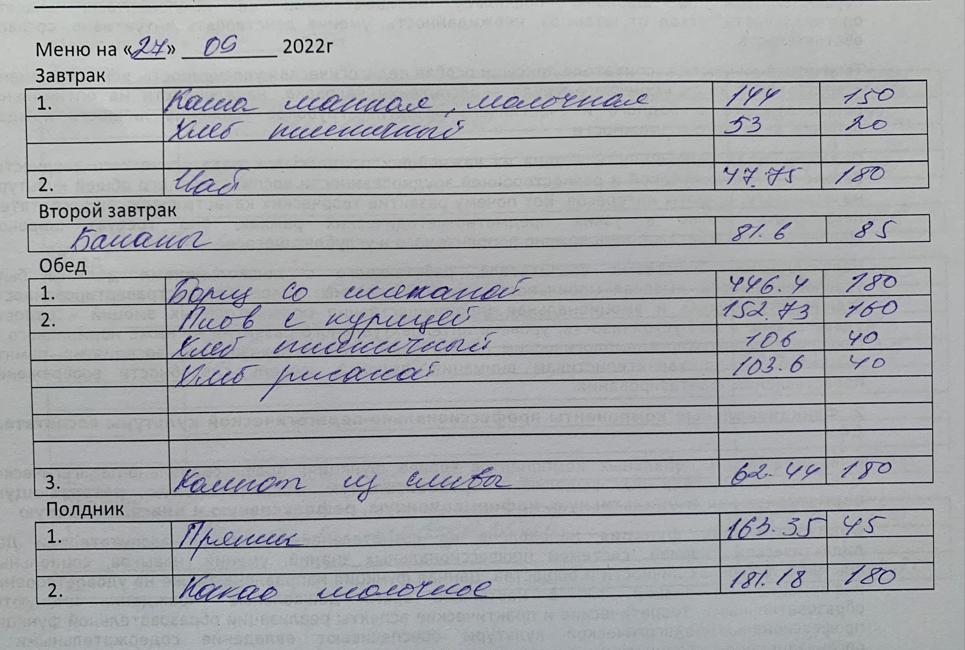 Меню на «27» 09 2022г
Завтрак
1. Каша манная, молочная 144 150
Хлеб пшеничный 53 20
2. Чай 47.75 180
Второй завтрак
Бананы 81.6 85
Обед
1. Борщ со сметаной 446.4 180
2. Плов с курицей 152.73 160
Хлеб пшеничный 106 40
Хлеб ржаной 103.6 40
3. Компот из сливы 62.44 180
Полдник
1. Пряник 163.35 45
2. Какао молочное 181.18 180